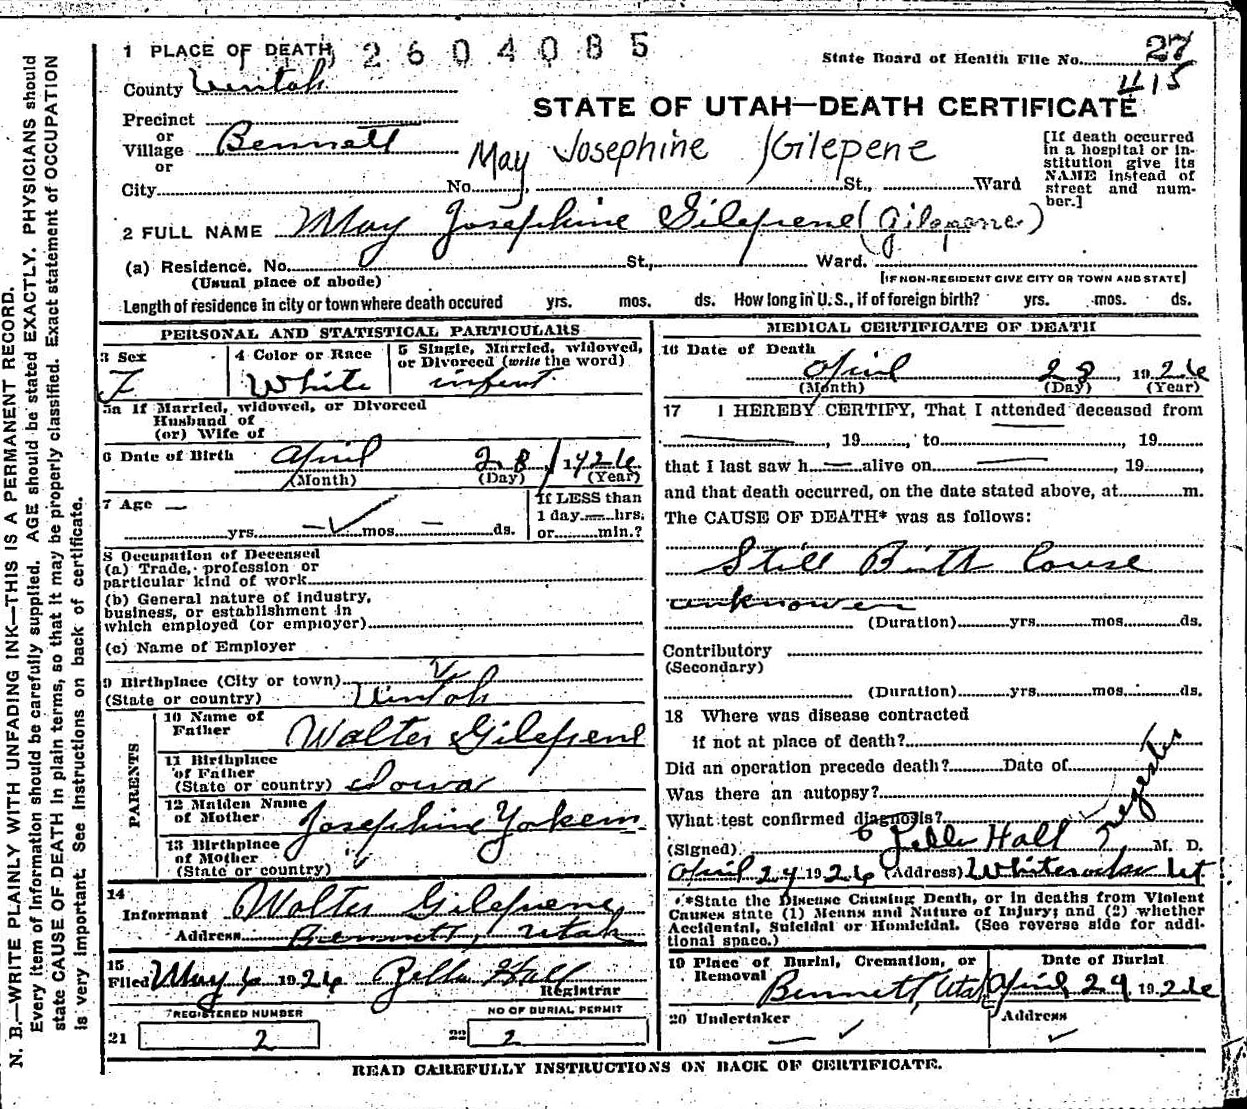 N. B.—WRITE PLAINLY WITH UNFADING INK—THIS IS A PERMANENT RECORD.
Every item of Information should be carefully supplied. AGE should be stated EXACTLY. PHYSICIANS should
state CAUSE OF DEATH in plain terms, so that it may be properly classified. Exact statement of OCCUPATION
is very important. See instructions on back of certificate.
1 PLACE OF DEATH 2604085
State Board of Health File No. 27
415
County Uintah
STATE OF UTAH—DEATH CERTIFICATE
Precinct
or
Village Bennett
or
May Josephine Gilepene
[If death occurred
in a hospital or in-
stitution give its
NAME instead of
street and num-
ber.]
City No. St., Ward
2 FULL NAME May Josephine Gilepene (Gilepene)
(a) Residence. No. St., Ward.
(Usual place of abode) [IF NON-RESIDENT GIVE CITY OR TOWN AND STATE]
Length of residence in city or town where death occured yrs. mos. ds. How long in U. S., if of foreign birth? yrs. mos. ds.
PERSONAL AND STATISTICAL PARTICULARS
3 Sex
F
4 Color or Race
White
5 Single, Married, widowed,
or Divorced (write the word)
infent
5a If Married, widowed, or Divorced
Husband of
(or) Wife of
6 Date of Birth April 28 1926
(Month) (Day) (Year)
7 Age —
yrs. — mos — ds.
If LESS than
1 day — hrs.
or min.?
8 Occupation of Deceased
(a) Trade, profession or
particular kind of work
(b) General nature of industry,
business, or establishment in
which employed (or employer)
(c) Name of Employer
9 Birthplace (City or town)
(State or country) Uintah
PARENTS
10 Name of
Father Walter Gilepene
11 Birthplace
of Father
(State or country) Iowa
12 Maiden Name
of Mother Josephine Yokem
13 Birthplace
of Mother
(State or country)
14
Informant Walter Gilepene
Address Bennett, Utah
15
Filed May 6 1926 Zella Hall
Registrar
REGISTERED NUMBER
21 2
NO OF BURIAL PERMIT
22 2
MEDICAL CERTIFICATE OF DEATH
16 Date of Death
April 28, 1926
(Month) (Day) (Year)
17 I HEREBY CERTIFY, That I attended deceased from
—, 19, to, 19
that I last saw h — alive on —, 19,
and that death occurred, on the date stated above, at m.
The CAUSE OF DEATH* was as follows:
Still Birth Couse
unknowen
(Duration) yrs. mos. ds.
Contributory
(Secondary)
(Duration) yrs. mos. ds.
18 Where was disease contracted
if not at place of death?
Did an operation precede death? Date of
Was there an autopsy?
What test confirmed diagnosis?
(Signed) Zella Hall M. D.
April 29 1926 (Address) Ut
*State the Disease Causing Death, or in deaths from Violent
Causes state (1) Means and Nature of Injury; and (2) whether
Accidental, Suicidal or Homicidal. (See reverse side for addi-
tional space.)
19 Place of Burial, Cremation, or
Removal
Bennett, Utah
Date of Burial
April 29 1926
20 Undertaker
—
Address
READ CAREFULLY INSTRUCTIONS ON BACK OF CERTIFICATE.